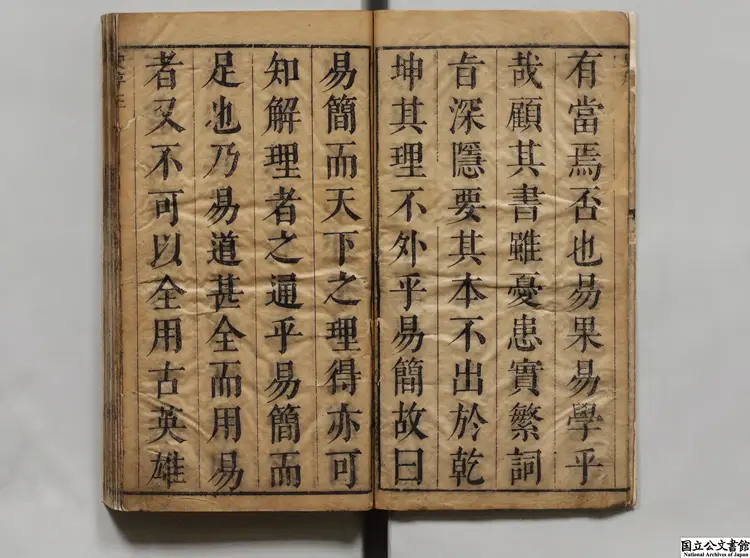 有當焉否也易果易學乎
哉顧其書雖憂患實繁詞
旨深隱要其本不出於乾
坤其理不外乎易簡故曰
易簡而天下之理得亦可
知解理者之通乎易簡而
足也乃易道甚全而用易
者又不可以全用古英雄
国立公文書館
National Archives of Japan